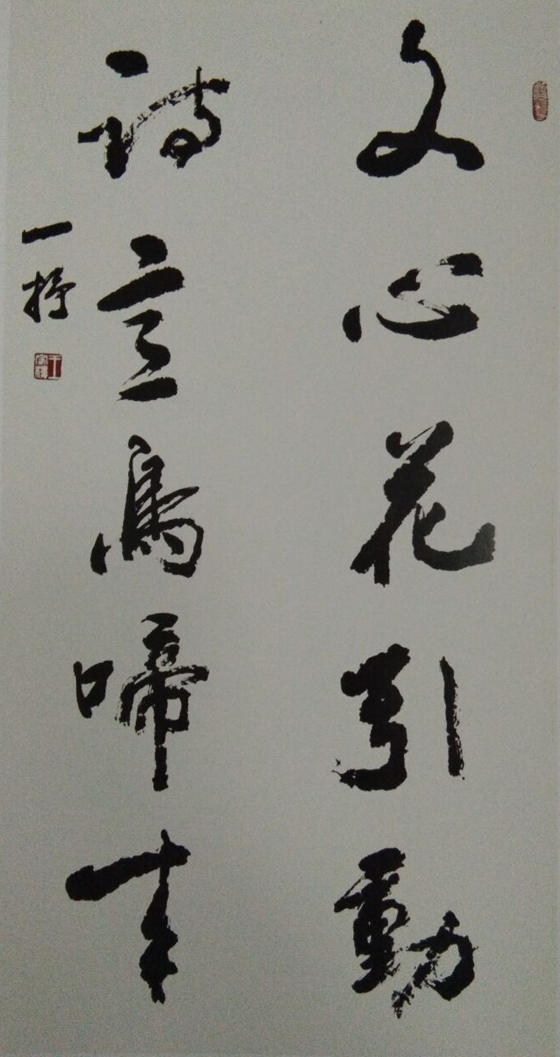 文心花引動
詩意鳥啼來
一抒